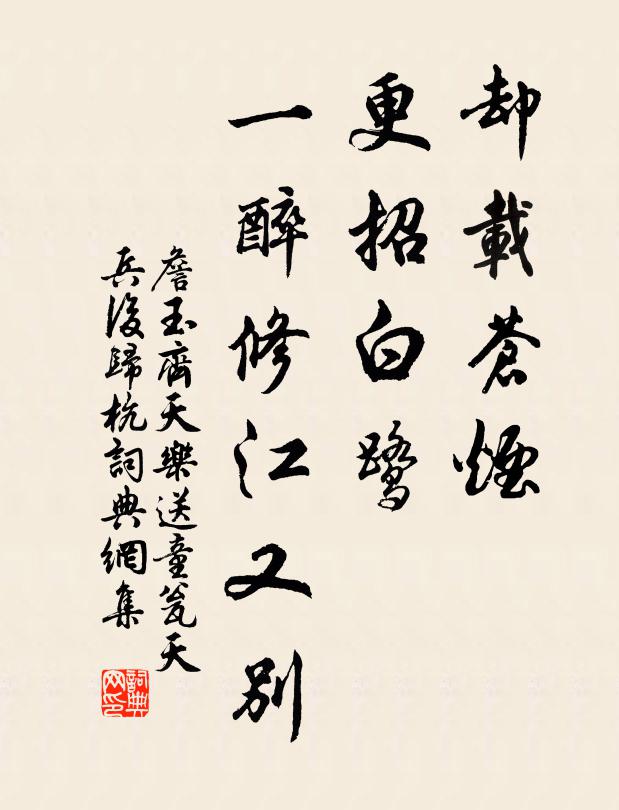 却載蒼煙
更招白鷺
一醉修江又別
詹玉齊天樂送童瓮天
兵後歸杭詞典網集
詞典网印